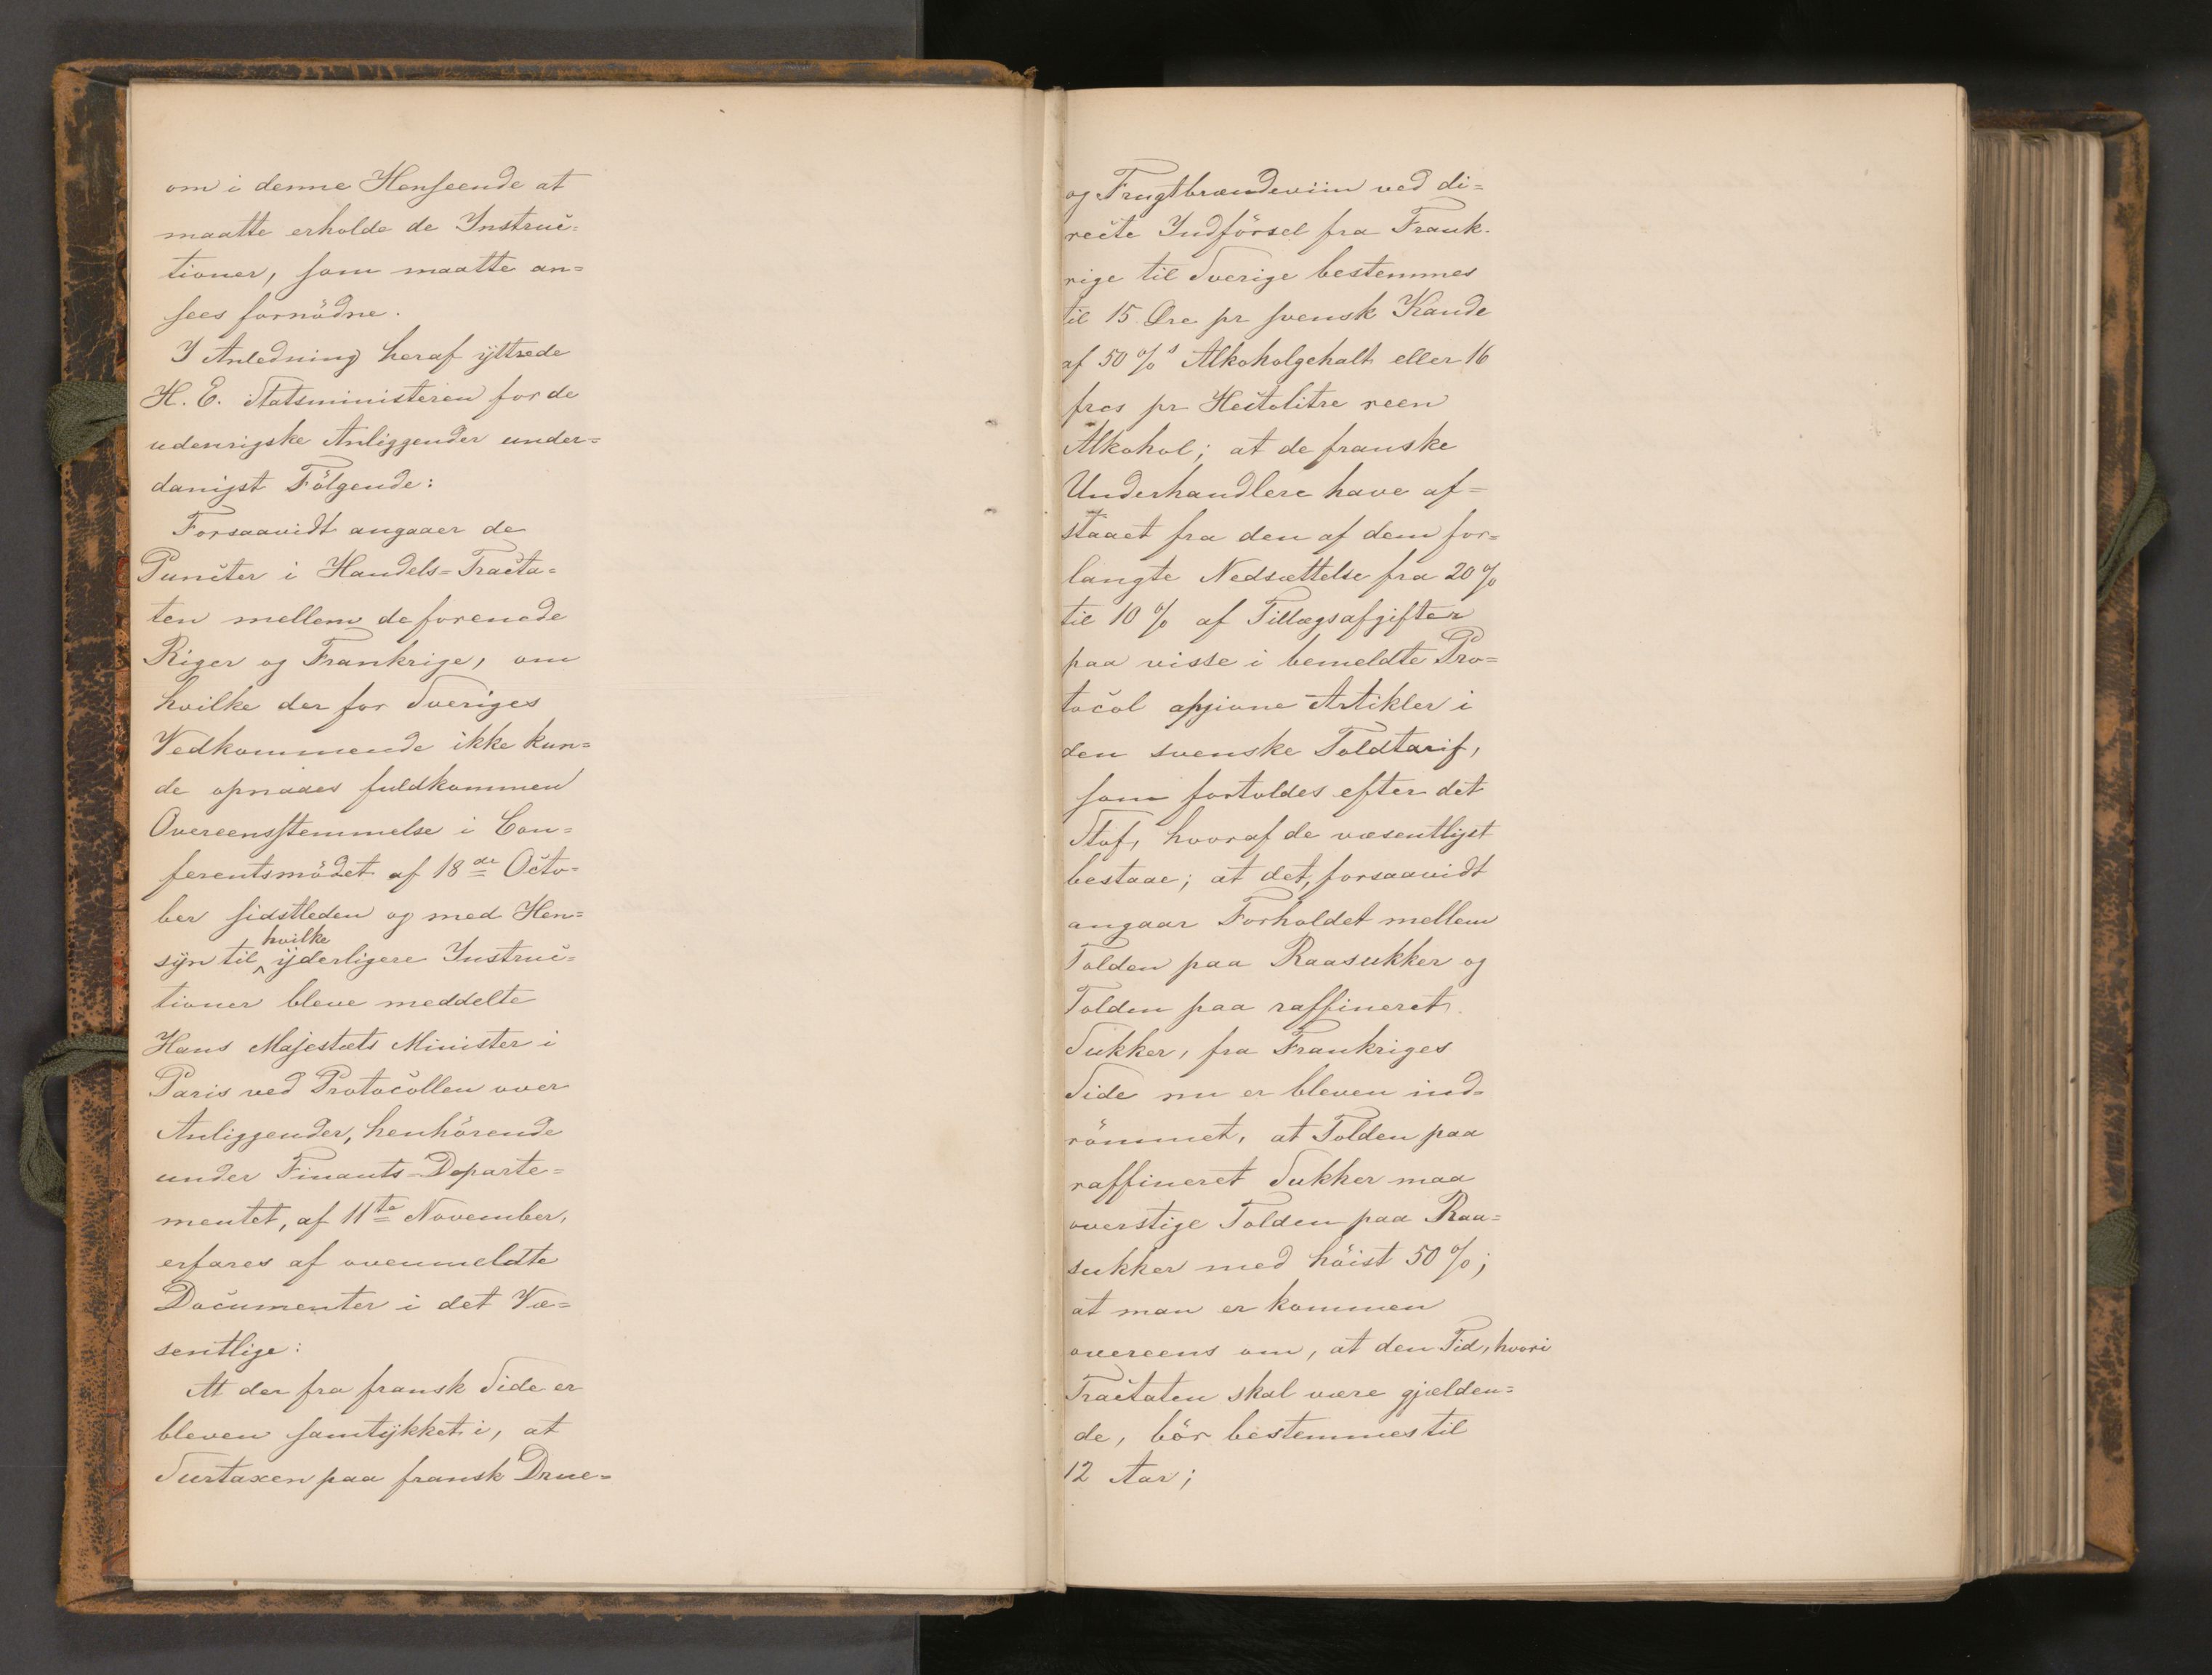 om i denne Henseende at
maatte erholde de Instruc=
tioner, som maatte an=
sees fornödne.
I Anledning heraf yttrede
H. E. Statsministeren for de
udenrigske Anliggender under=
danigst Fölgende:
Forsaavidt angaaer de
Puncter i Handels=Tracta=
ten mellem de forenede
Riger og Frankrige, om
hvilke der for Sveriges
Vedkommende ikke kun=
de opnaaes fuldkommen
Overeensstemmelse i Con=
ferentsmödet af 18de Octo=
ber sidstleden og med Hen=
syn til hvilke yderligere Instruc=
tioner bleve meddelte
Hans Majestæts Minister i
Paris ved Protocollen over
Anliggender, henhörende
under Finants=Departe=
mentet, af 11te November,
erfares af ovenmeldte
Documenter i det Væ=
sentlige:
At der fra fransk Side er
bleven samtykket i, at
Surtaxen paa fransk Drue=
og Frugtbrændeviin ved di=
recte Indförsel fra Frank=
rige til Sverige bestemmes
til 15 Øre pr svensk Kande
af 50 %s Alkoholgehalt eller 16
frcs pr Hectolitre reen
Alkohol; at de franske
Underhandlere have af=
staaet fra den af dem for=
langte Nedsættelse fra 20 %
til 10 % af Tillægsafgifter
paa visse i bemeldte Pro=
tocol opgivne Artikler i
den svenske Toldtarif,
som fortoldes efter det
Stof, hvoraf de væsentligst
bestaae; at det, forsaavidt
angaar Forholdet mellem
Tolden paa Raasukker og
Tolden paa raffineret
Sukker, fra Frankriges
Side nu er bleven ind=
römmet, at Tolden paa
raffineret Sukker maa
overstige Tolden paa Raa=
sukker med höist 50 %;
at man er kommen
overeens om, at den Tid, hvori
Tractaten skal være gjælden=
de, bör bestemmes til
12 Aar;